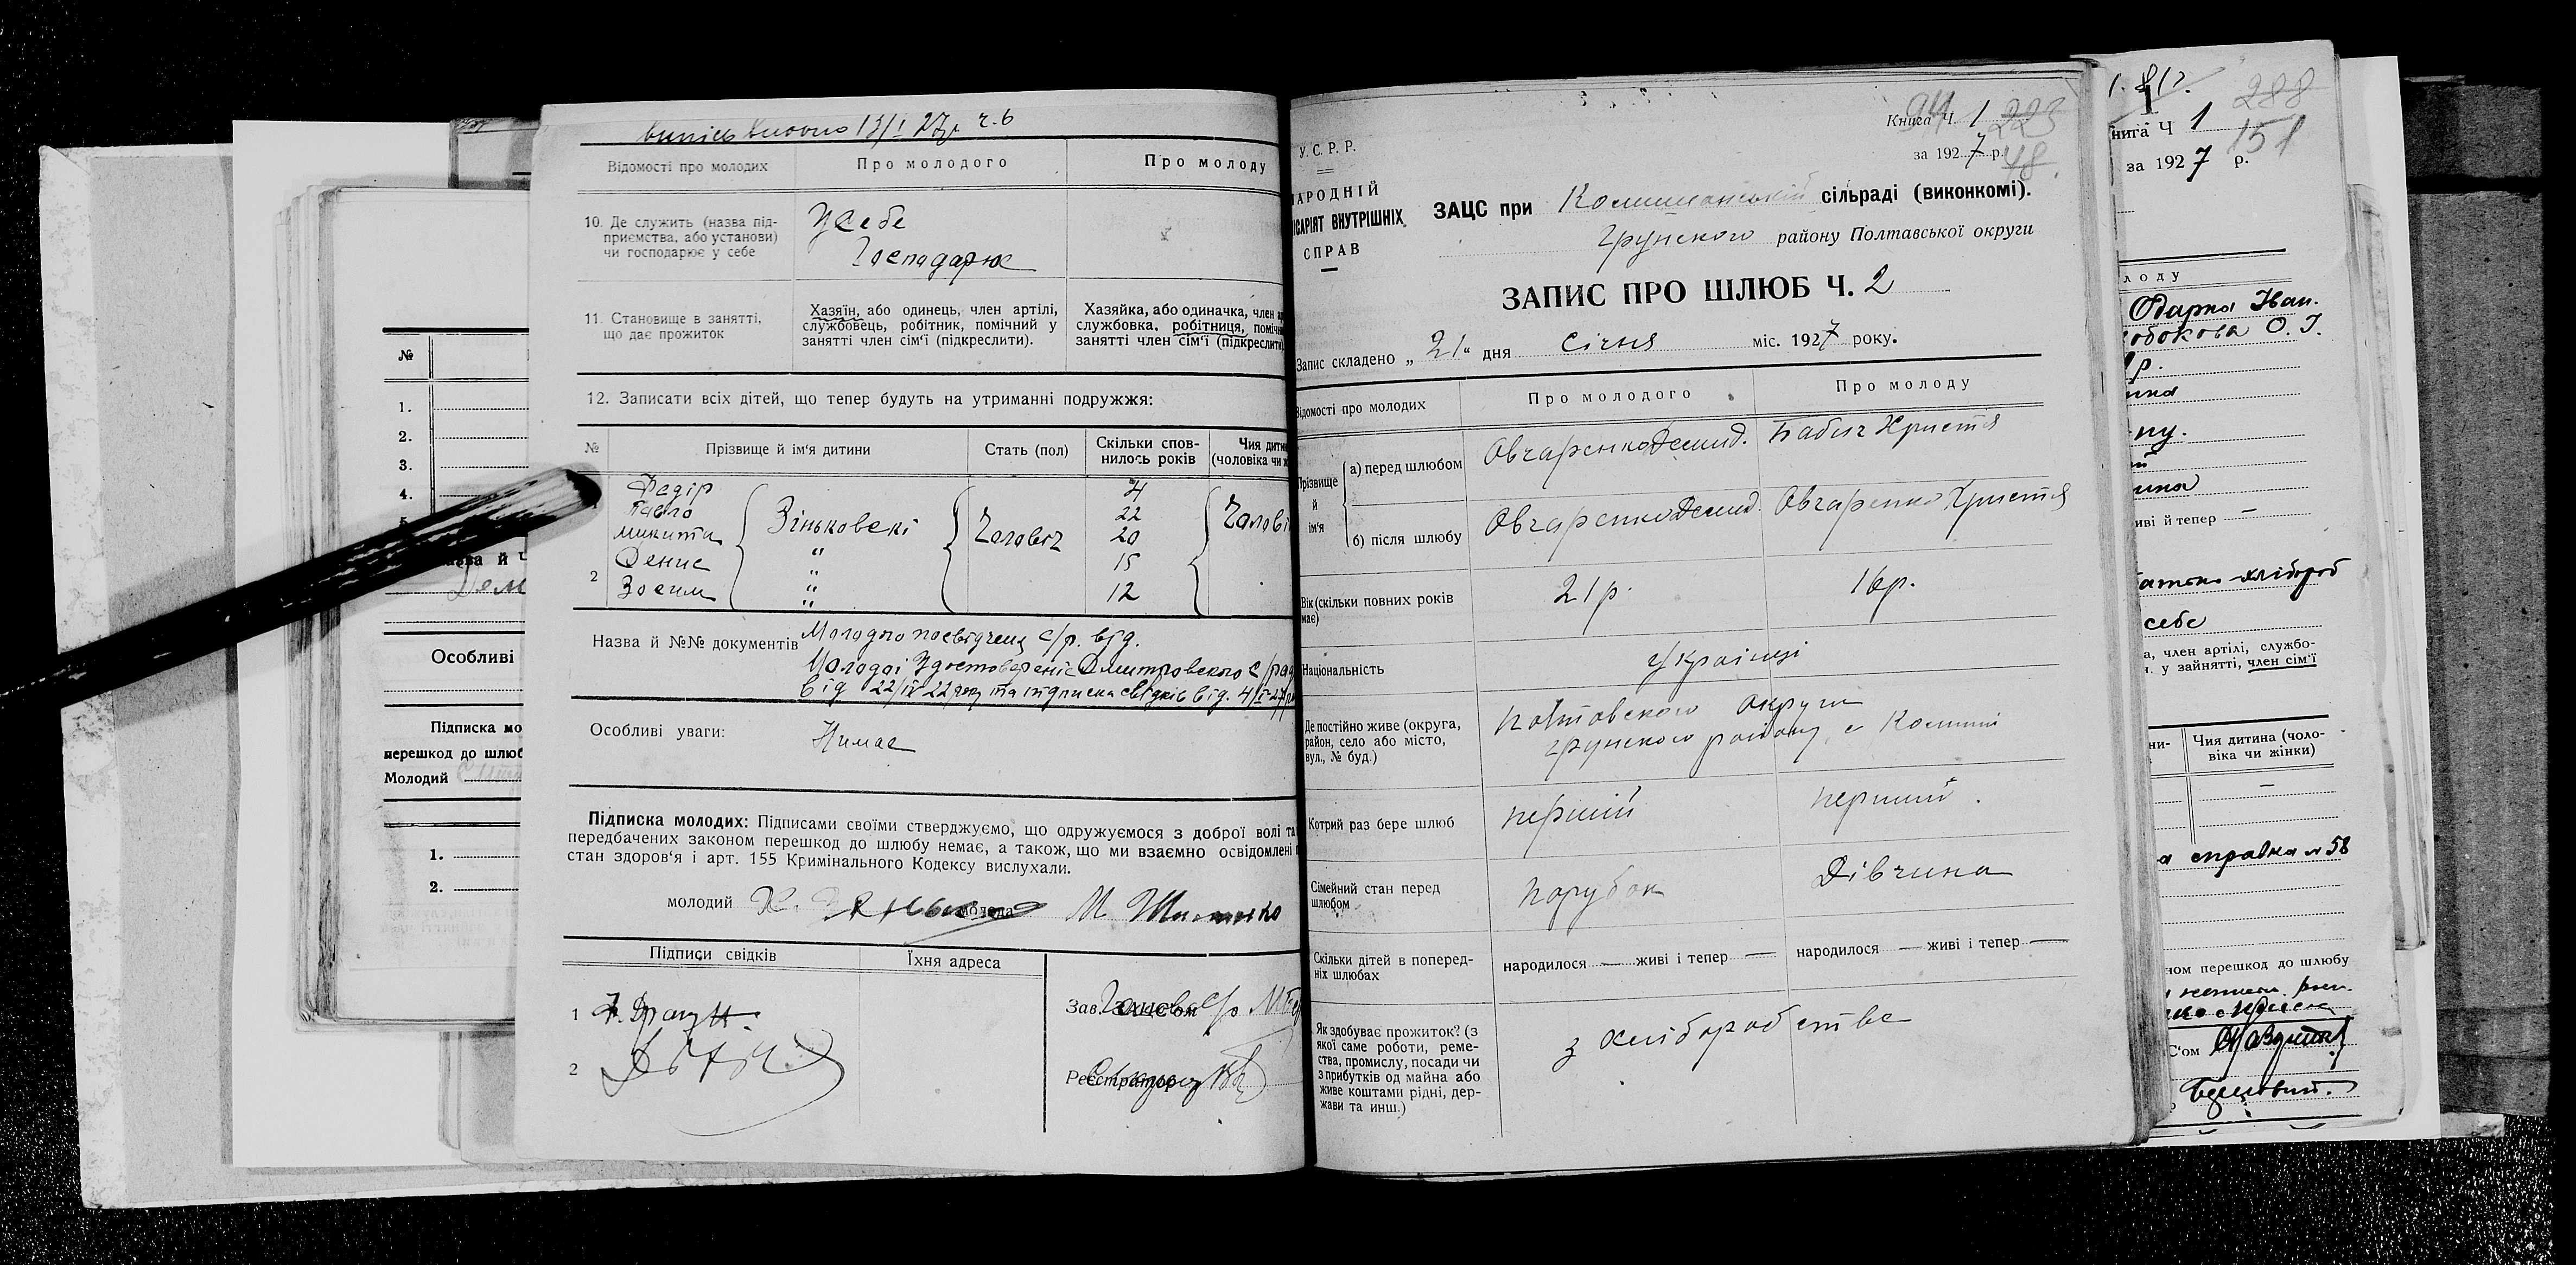 13/I 27р ч.6
Відомості про молодих
Про молодого
Про молоду
10. Де служить (назва під-
приємства, або установи)
чи господарює у себе
У себе
Господарює
11. Становище в занятті,
що дає прожиток
Хазяїн, або одинець, член артілі,
службовець, робітник, помічний у
занятті член сім'ї (підкреслити).
Хазяйка, або одиначка, член
службовка, робітниця,
занятті член сім'ї (підкреслити)
12. Записати всіх дітей, що тепер будуть на утриманні подружжя:
№
Прізвище й ім'я дитини
Стать (пол)
Скільки спов-
нилось років
Чия дити
(чоловіка чи
Федір
Павло 22
Микита Зіньковскі Чоловіч 20
Денис " 15
2 Зосим " 12
Назва й №№ документів
Молодого посвідчення с/р. від.
Молодої
від 22/IV 22 року та підписка свідків від. 4/I-27
Особливі уваги:
Нимає
Підписка молодих: Підписами своїми стверджуємо, що одружуємося з доброї волі та
передбачених законом перешкод до шлюбу немає, а також, що ми взаємно освідомлені
стан здоров'я і арт. 155 Кримінального Кодексу вислухали.
молодий
молода
Підписи свідків
Їхня адреса
1
2
Зав. ЗАЦС'ом
Реєстратор
№
1.
2.
3.
4.
Особливі
Підписка мо
перешкод до шлюб
Молодий
1.
2.
У.С.Р.Р.
НАРОДНІЙ
КОМІСАРІЯТ ВНУТРІШНІХ
СПРАВ
Книга Ч. 1
94
223
за 1927 р.
48
ЗАЦС при Комишанській сільраді (виконкомі).
Грунского району Полтавської округи
ЗАПИС ПРО ШЛЮБ Ч. 2
Запис складено „ 21 “ дня січня міс. 1927 року.
Відомості про молодих
Про молодого
Про молоду
Прізвище
й
ім'я
а) перед шлюбом
Овчаренко Демид.
Бабич Христя
б) після шлюбу
Овчаренко Демид.
Овчаренко Христя
Вік (скільки повних років
має)
21 р.
16 р.
Національність
Українці
Де постійно живе (округа,
район, село або місто,
вул., № буд.)
Полтовского округи
Грунского району, с Комиши
Котрий раз бере шлюб
перший
перший.
Сімейний стан перед
шлюбом
Парубок
Дівчина
Скільки дітей в поперед-
ніх шлюбах
народилося — живі і тепер —
народилося — живі і тепер —
Як здобуває прожиток? (з
якої саме роботи, реме-
ства, промислу, посади чи
з прибутків од майна або
живе коштами рідні, дер-
жави та инш.)
з хліборобства
288
нига Ч 1
151
за 1927 р.
лоду
Одарка Іван.
обокова О. І.
иві й тепер —
хлібороб
себе
а, член артілі, службо-
у зайнятті, член сім'ї
Чия дитина (чоло-
віка чи жінки)
—
справка № 58
ном перешкод до шлюбу
С'ом